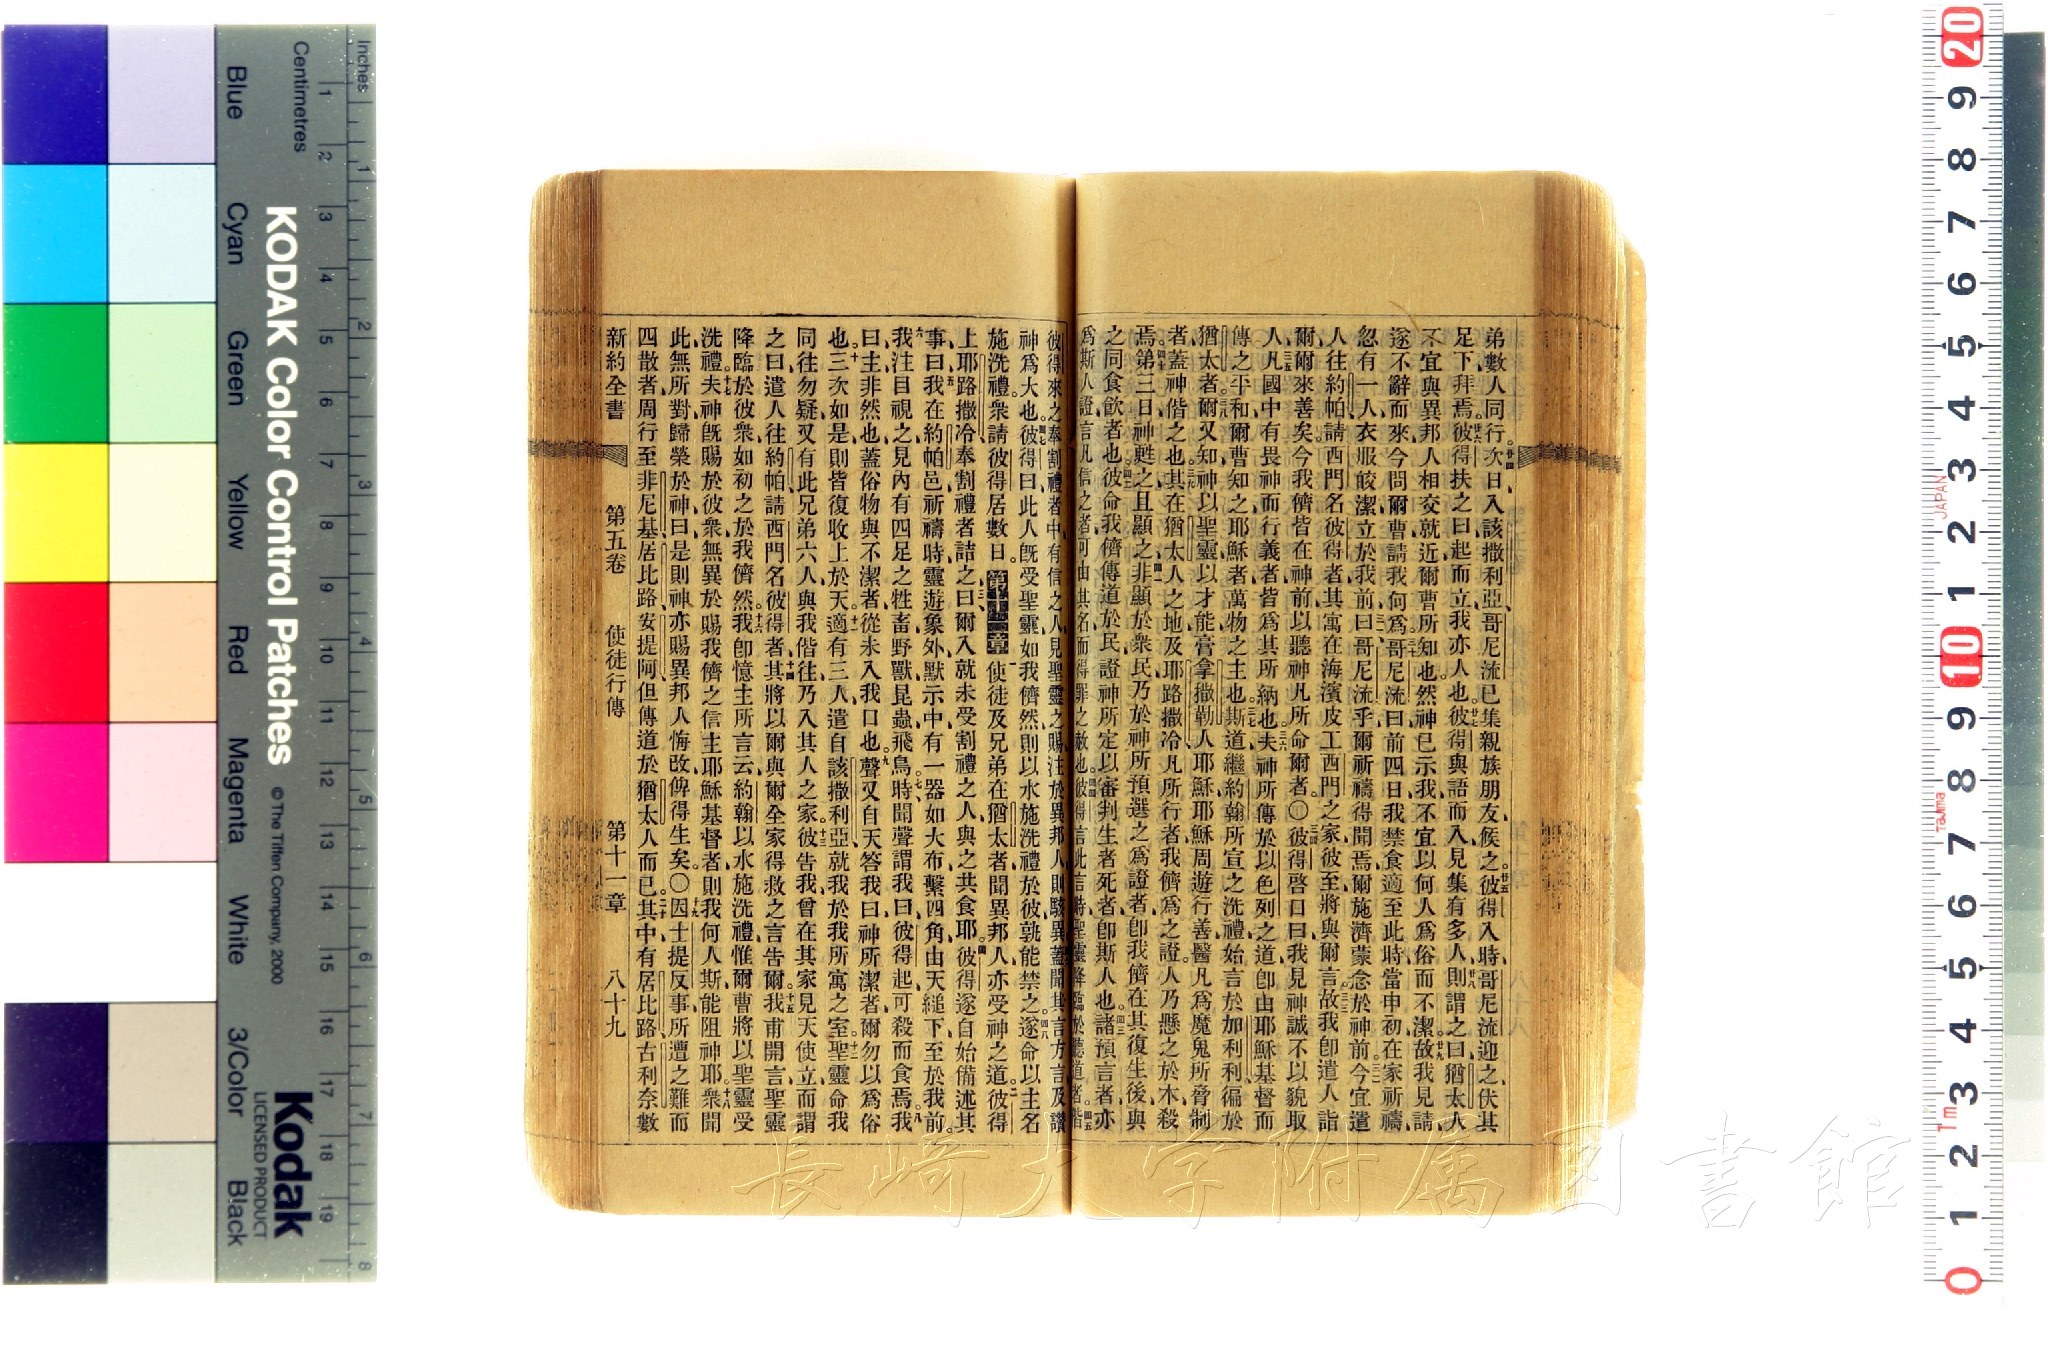 Inches
Centimetres
KODAK Color Control Patches
© The Tiffen Company, 2000
Kodak
LICENSED PRODUCT
Blue
Cyan
Green
Yellow
Red
Magenta
White
3/Color
Black
弟數人同行次日入該撒利亞哥尼流已集親族朋友候之彼得入時哥尼流迎之伏其
足下拜焉彼得扶之曰起而立我亦人也彼得與語而入見集有多人則謂之曰猶太人
不宜與異邦人相交就近爾曹所知也然神已示我不宜以何人爲俗而不潔故我見請
遂不辭而來今問爾曹請我何爲哥尼流曰前四日我禁食適至此時當申初在家祈禱
忽有一人衣服皎潔立於我前曰哥尼流乎爾祈禱得聞焉爾施濟蒙念於神前今宜遣
人往約帕請西門名彼得者其寓在海濱皮工西門之家彼至將與爾言故我卽遣人詣
爾爾來善矣今我儕皆在神前以聽神凡所命爾者○彼得啓口曰我見神誠不以貌取
人凡國中有畏神而行義者皆爲其所納也夫神所傳於以色列之道卽由耶穌基督而
傳之平和爾曹知之耶穌者萬物之主也斯道繼約翰所宣之洗禮始言於加利利徧於
猶太者爾又知神以聖靈以才能膏拿撒勒人耶穌耶穌周遊行善醫凡爲魔鬼所脅制
者蓋神偕之也其在猶太人之地及耶路撒冷凡所行者我儕爲之證人乃懸之於木殺
焉第三日神甦之且顯之非顯於衆民乃於神所預選之爲證者卽我儕在其復生後與
之同食飲者也彼命我儕傳道於民證神所定以審判生者死者卽斯人也諸預言者亦
爲斯人證言凡信之者可由其名而得罪之赦也彼得言此言時聖靈降臨於聽道者皆
彼得來之奉割禮者中有信之人見聖靈之賜注於異邦人則駭異蓋聞其言方言及讚
神爲大也彼得曰此人旣受聖靈如我儕然則以水施洗禮於彼孰能禁之遂命以主名
施洗禮衆請彼得居數日。第十一章使徒及兄弟在猶太者聞異邦人亦受神之道彼得
上耶路撒冷奉割禮者詰之曰爾入就未受割禮之人與之共食耶彼得遂自始備述其
事曰我在約帕邑祈禱時靈遊象外默示中有一器如大布繫四角由天縋下至於我前
我注目視之見內有四足之牲畜野獸昆蟲飛鳥時聞聲謂我曰彼得起可殺而食焉我
曰主非然也蓋俗物與不潔者從未入我口也聲又自天答我曰神所潔者爾勿以爲俗
也三次如是則皆復收上於天適有三人遣自該撒利亞就我於我所寓之室聖靈命我
同往勿疑又有此兄弟六人與我偕往乃入其人之家彼告我曾在其家見天使立而謂
之曰遣人往約帕請西門名彼得者其將以爾與爾全家得救之言告爾我甫開言聖靈
降臨於彼衆如初之於我儕然我卽憶主所言云約翰以水施洗禮惟爾曹將以聖靈受
洗禮夫神旣賜於彼衆無異於賜我儕之信主耶穌基督者則我何人斯能阻神耶衆聞
此無所對歸榮於神曰是則神亦賜異邦人悔改俾得生矣○因士提反事所遭之難而
四散者周行至非尼基居比路安提阿但傳道於猶太人而已其中有居比路古利奈數
新約全書 第五卷 使徒行傳 第十一章 八十九
長崎大学附属図書館
JAPAN
Tajima
Tm